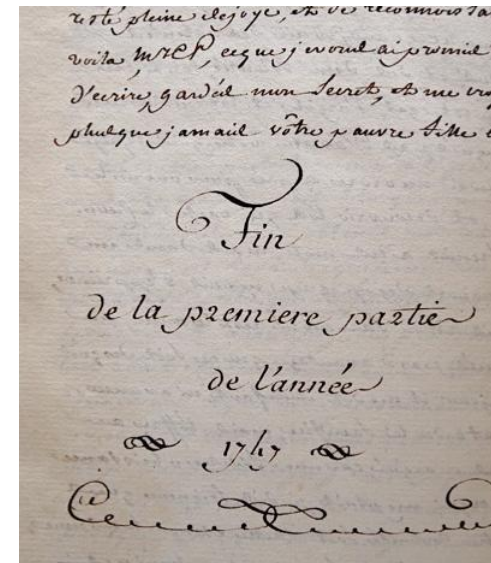 resté pleine dejoye, et de reconnois
voila, M𝑟CP, ceque j'evoul ai promis
d'ecrire, gardéd mon Secret, et me cro
phulque jamail vôtre pauvre fille
Fin
de la premiere partie
de l'année
1747